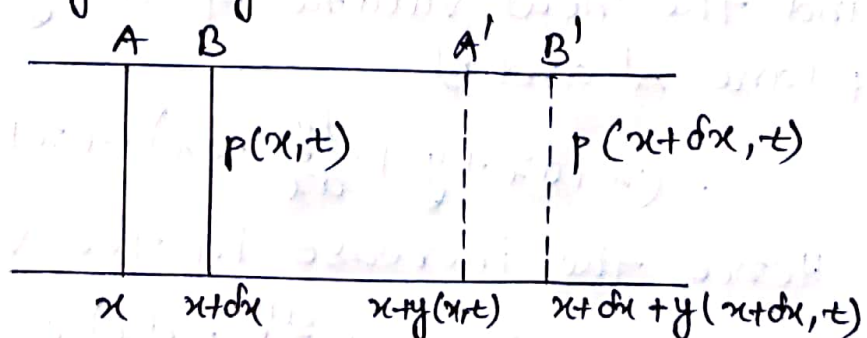 A B A' B'
p(x,t) p(x+δx,t)
x x+δx x+y(x,t) x+δx+y(x+δx,t)